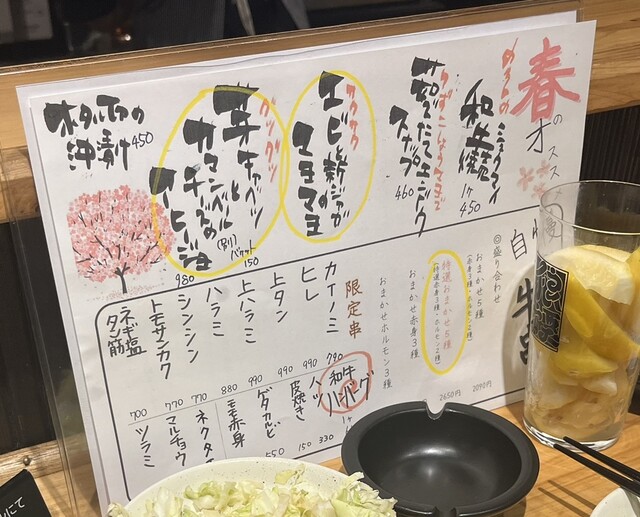 春のオススメ
和牛焼
1ケ 450
茹でたてエンドウ
スナップ
460
サクサク
エビと新ジャガの
マヨマヨ
グツグツ
芽キャベツと
カマンベールチーズの
アヒージョ
980
(別)バケット
150
ホタルイカの
沖漬け 450
◎盛り合わせ
おまかせ5種
(赤身3種・ホルモン2種)
2090円
特選おまかせ5種
(特選赤身3種・ホルモン2種)
2650円
おまかせ赤身3種
おまかせホルモン3種
限定串
カイノミ 790
ヒレ 990
上タン 990
上ハラミ 990
ハラミ 880
シンシン 770
トモサンカク 770
ネギ塩タン筋 700
和牛ハンバーグ
ハツ 330
皮焼き 150
ゲタカルビ 550
モモ赤身
ネクタイ
マルチョウ
ツラミ